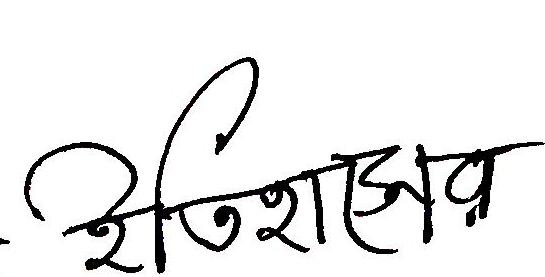 ইতিহাসের